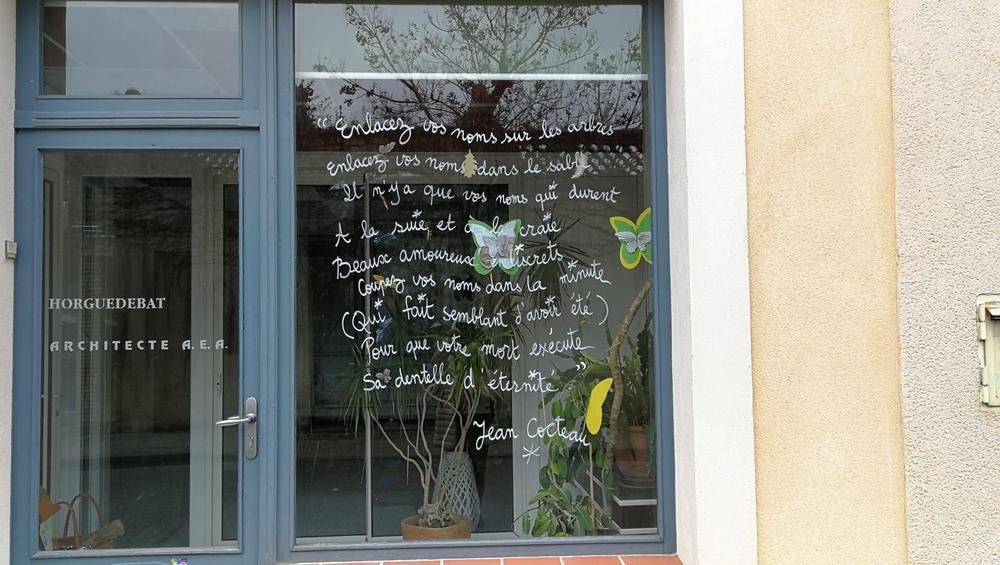 HORGUEDEBAT
ARCHITECTE A.E.A.
“ Enlacez vos noms sur les arbres
Enlacez vos noms dans le sable
Il n'y a que vos noms qui durent
A la suie et à la craie
Beaux amoureux indiscrets
Coupez vos noms dans la minute
(Qui fait semblant d'avoir été)
Pour que votre mort exécute
Sa dentelle d'éternité. ”
Jean Cocteau